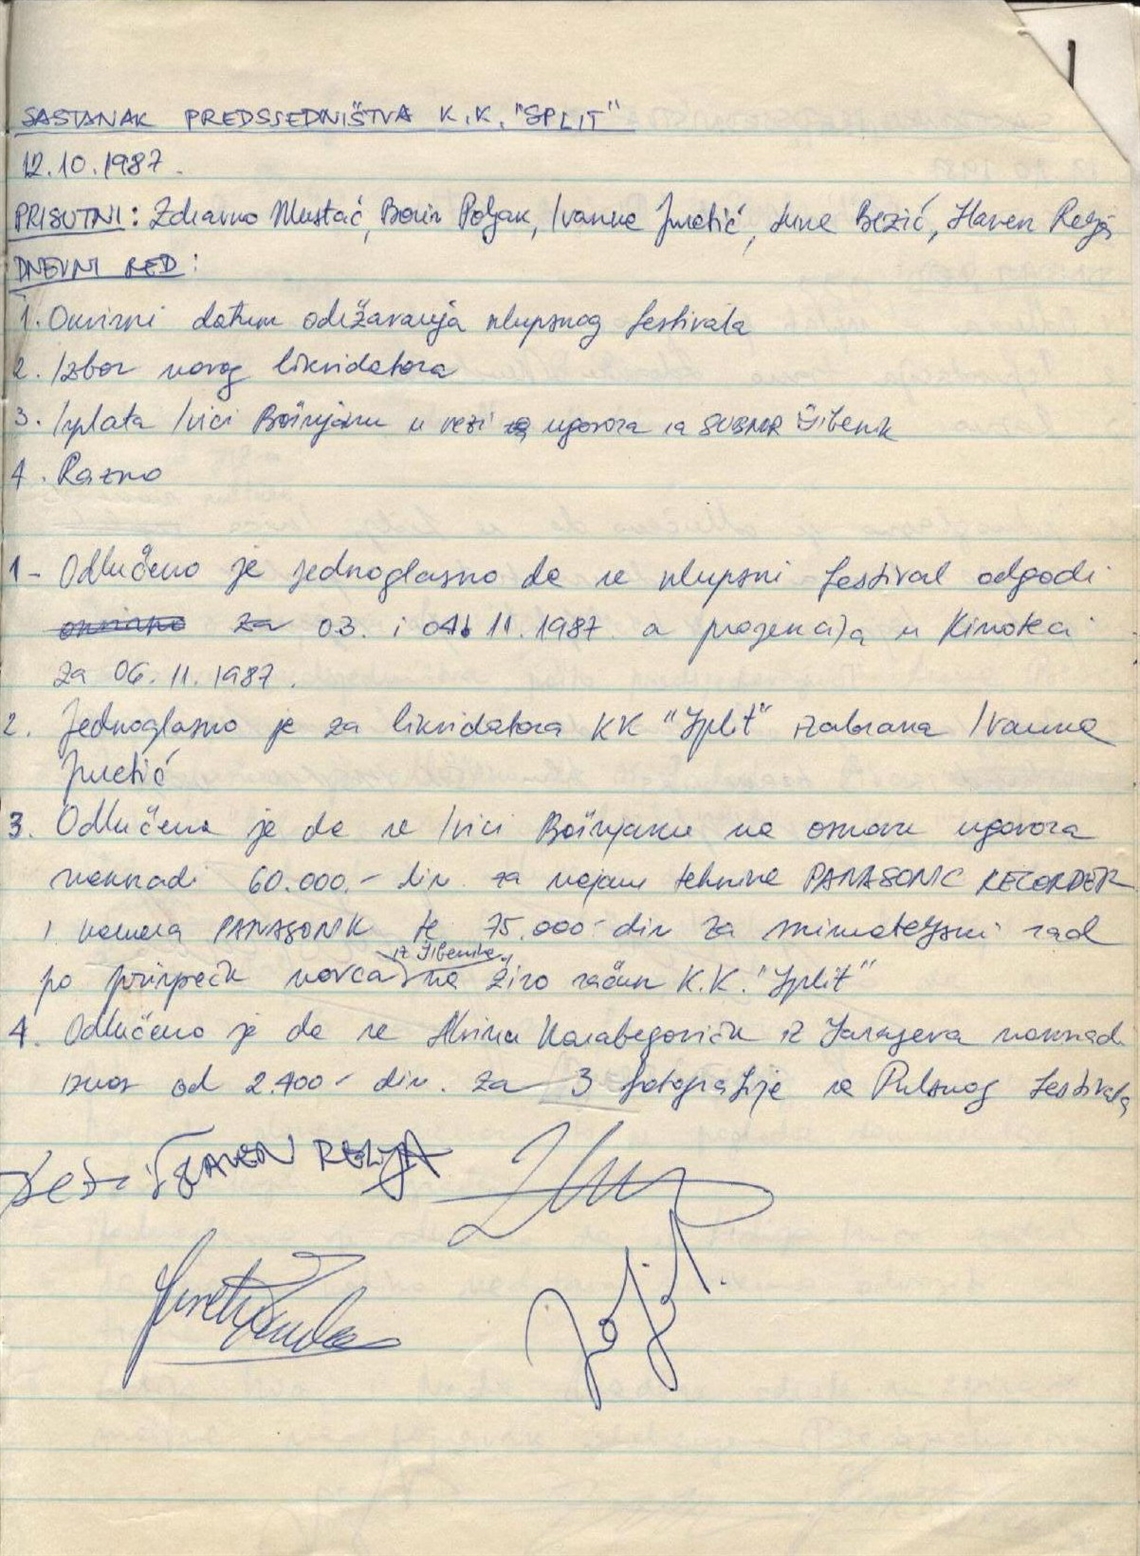 SASTANAK PREDSJEDNIŠTVA K.K. "SPLIT"
12.10.1987.
PRISUTNI: Zdravko Mustać, Boris Poljak, Ivanka Juretić, Bezić, Slaven Relja
DNEVNI RED:
1. Okvirni datum održavanja klupskog festivala
2. Izbor novog likvidatora
3. Isplata Ivici Bošnjaku u vezi ugovora sa SUBNOR Šibenik
4. Razno
1- Odlučeno je jednoglasno da se klupski festival odgodi
okvirno za 03. i 04. 11. 1987. a projekcija u Kinoteci
za 06. 11. 1987.
2. Jednoglasno je za likvidatora KK "Split" izabrana Ivanka
Juretić
3. Odlučeno je da se Ivici Bošnjaku na osnovu ugovora
naknadi 60.000.- din za najam tehnike PANASONIC RECORDER
i kamera PANASONIK te 75.000- din za snimateljski rad
iz Šibenika
po prispeću novca na žiro račun K.K. "Split"
4. Odlučeno je da se Karabegoviću iz Sarajeva naknadi
iznos od 2.400- din. za 3 fotografije sa Pulskog festivala
SLAVEN RELJA